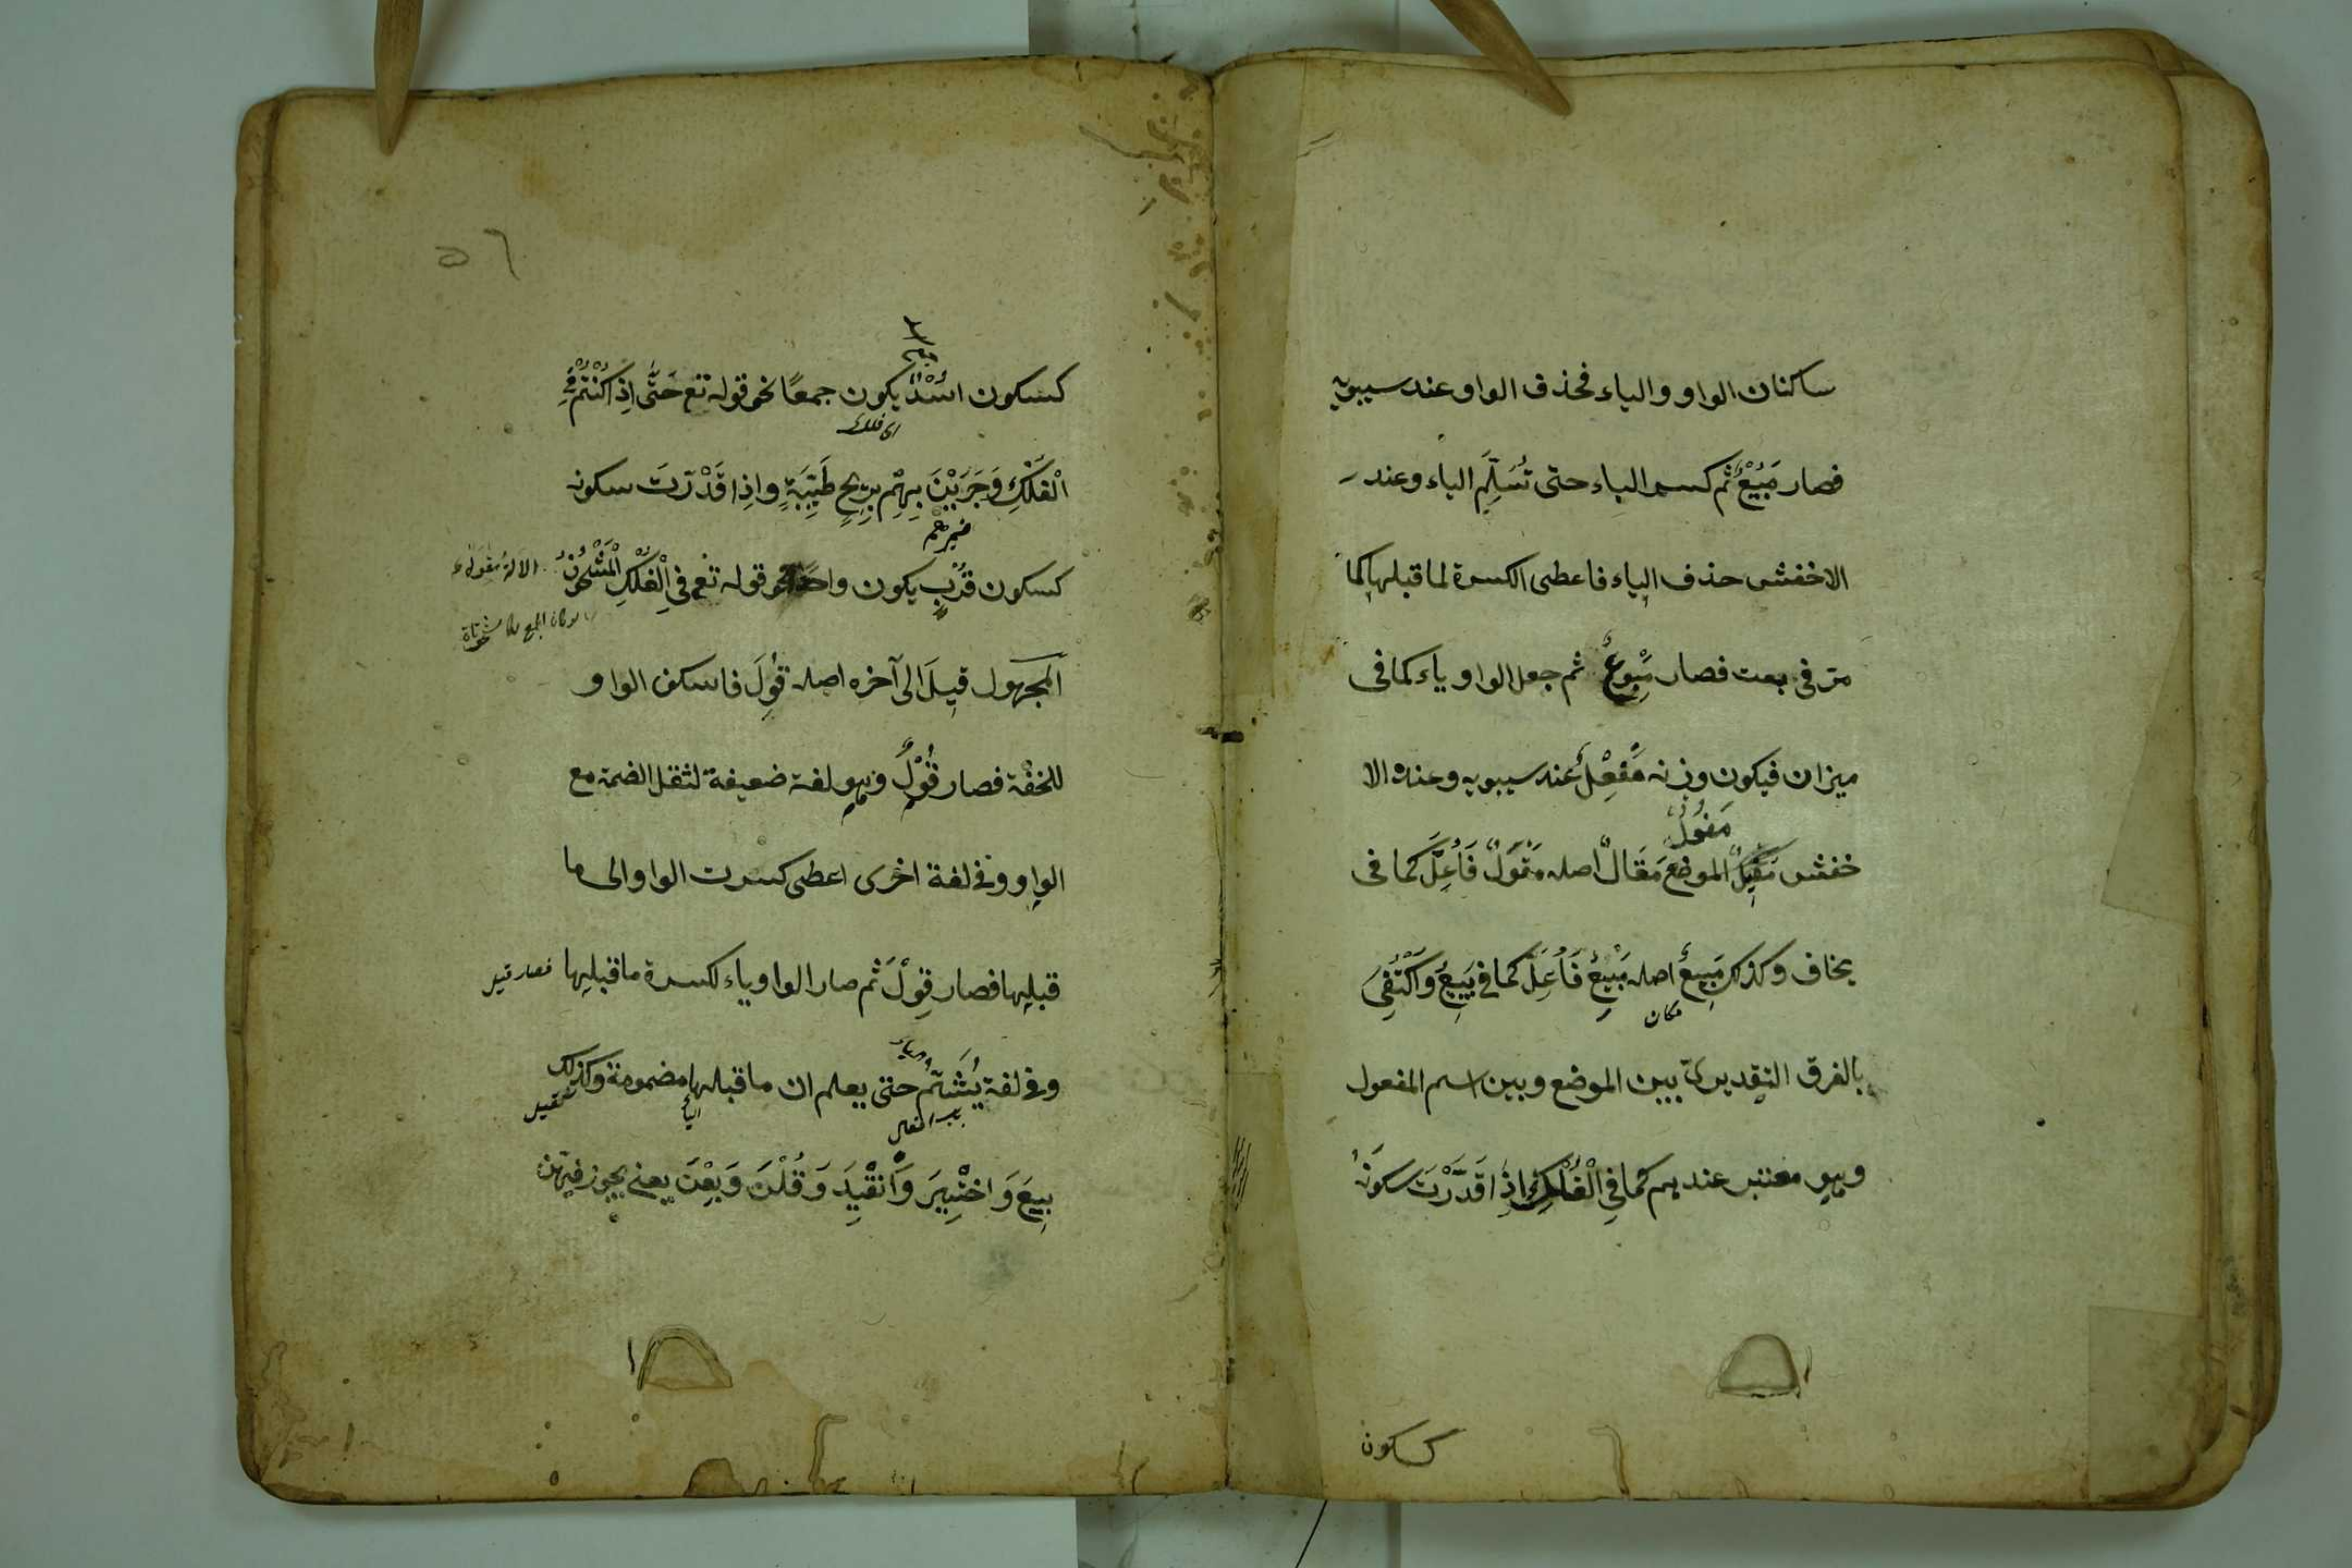 ساكنان الواو والياء فحذف الواو عند سيبويه
فصار مَبُيْعٌ ثم كسر الباء حتى تُسَلِّمَ الياء وعند
الاخفش حذف الياء فاعطى الكسرة لما قبلها كما
مر فى بعت فصار مَبِوْعٌ ثم جعل الواو ياء كما فى
ميزان فيكون وزنه مَفِعْلٌ عند سيبويه وعند الا
مَفُولٌ
خفش مَفِيلٌ الموضع مَقَالٌ اصله مَقْوَلٌ فَاُعِلَّ كما فى
يخاف وكذلك مَبِيعٌ اصله مَبْيِعٌ فَاُعِلَّ كما فى يَبِيعُ وَاكْتُفِىَ
مكان
بالفرق التقديرى بين الموضع وبين اسم المفعول
وهو معتبر عندهم كما فِى الْفُلْكِ اِذَا قَدَّرْتَ سكونَهُ
كسكون
٥٦
كسكون اُسْدٌ يكون جمعًا نحو قوله تع حَتَّى اِذَا كُنْتُمْ فِى
اى فلك
الْفُلْكِ وَجَرَيْنَ بِهِمْ بِرِيحٍ طَيِّبَةٍ واذا قَدَّرْتَ سكونه
ضميرهم
كسكون قُرْبٍ يكون واحدًا نحو قوله تع فى الْفُلْكِ الْمَشْحُونِ
المجهول قِيلَ الى آخره اصله قُوِلَ فاسكن الواو
للخفة فصار قُوْلَ وهو لغة ضعيفة لثقل الضمة مع
الواو وفى لغة اخرى اعطى كسرت الواو الى ما
قبلها فصار قِوْلَ ثم صار الواو ياء لكسرة ما قبلها فصار قيل
وفى لغة يُشَمُّ حتى يعلم ان ما قبلها مضمومة وكذلك
الياء
بِيعَ وَاخْتِيرَ وَانْقِيدَ وَقُلْنَ وَبِعْنَ يعنى يجوز فيهن